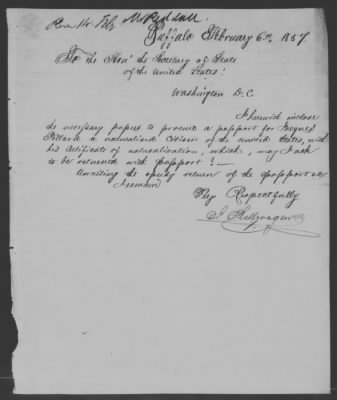 Buffalo February 6th 1857
To the Hon' the Secretary of State
of the United States:
Washington D.C.
I herewith inclose
the necessary papers to procure a passport for Jacques
a naturalized citizen of the United States, with
his Certificate of naturalization, which, may I ask
to be returned with passport? —
Awaiting the speedy return of the passport &c
I remain
Very Respectfully